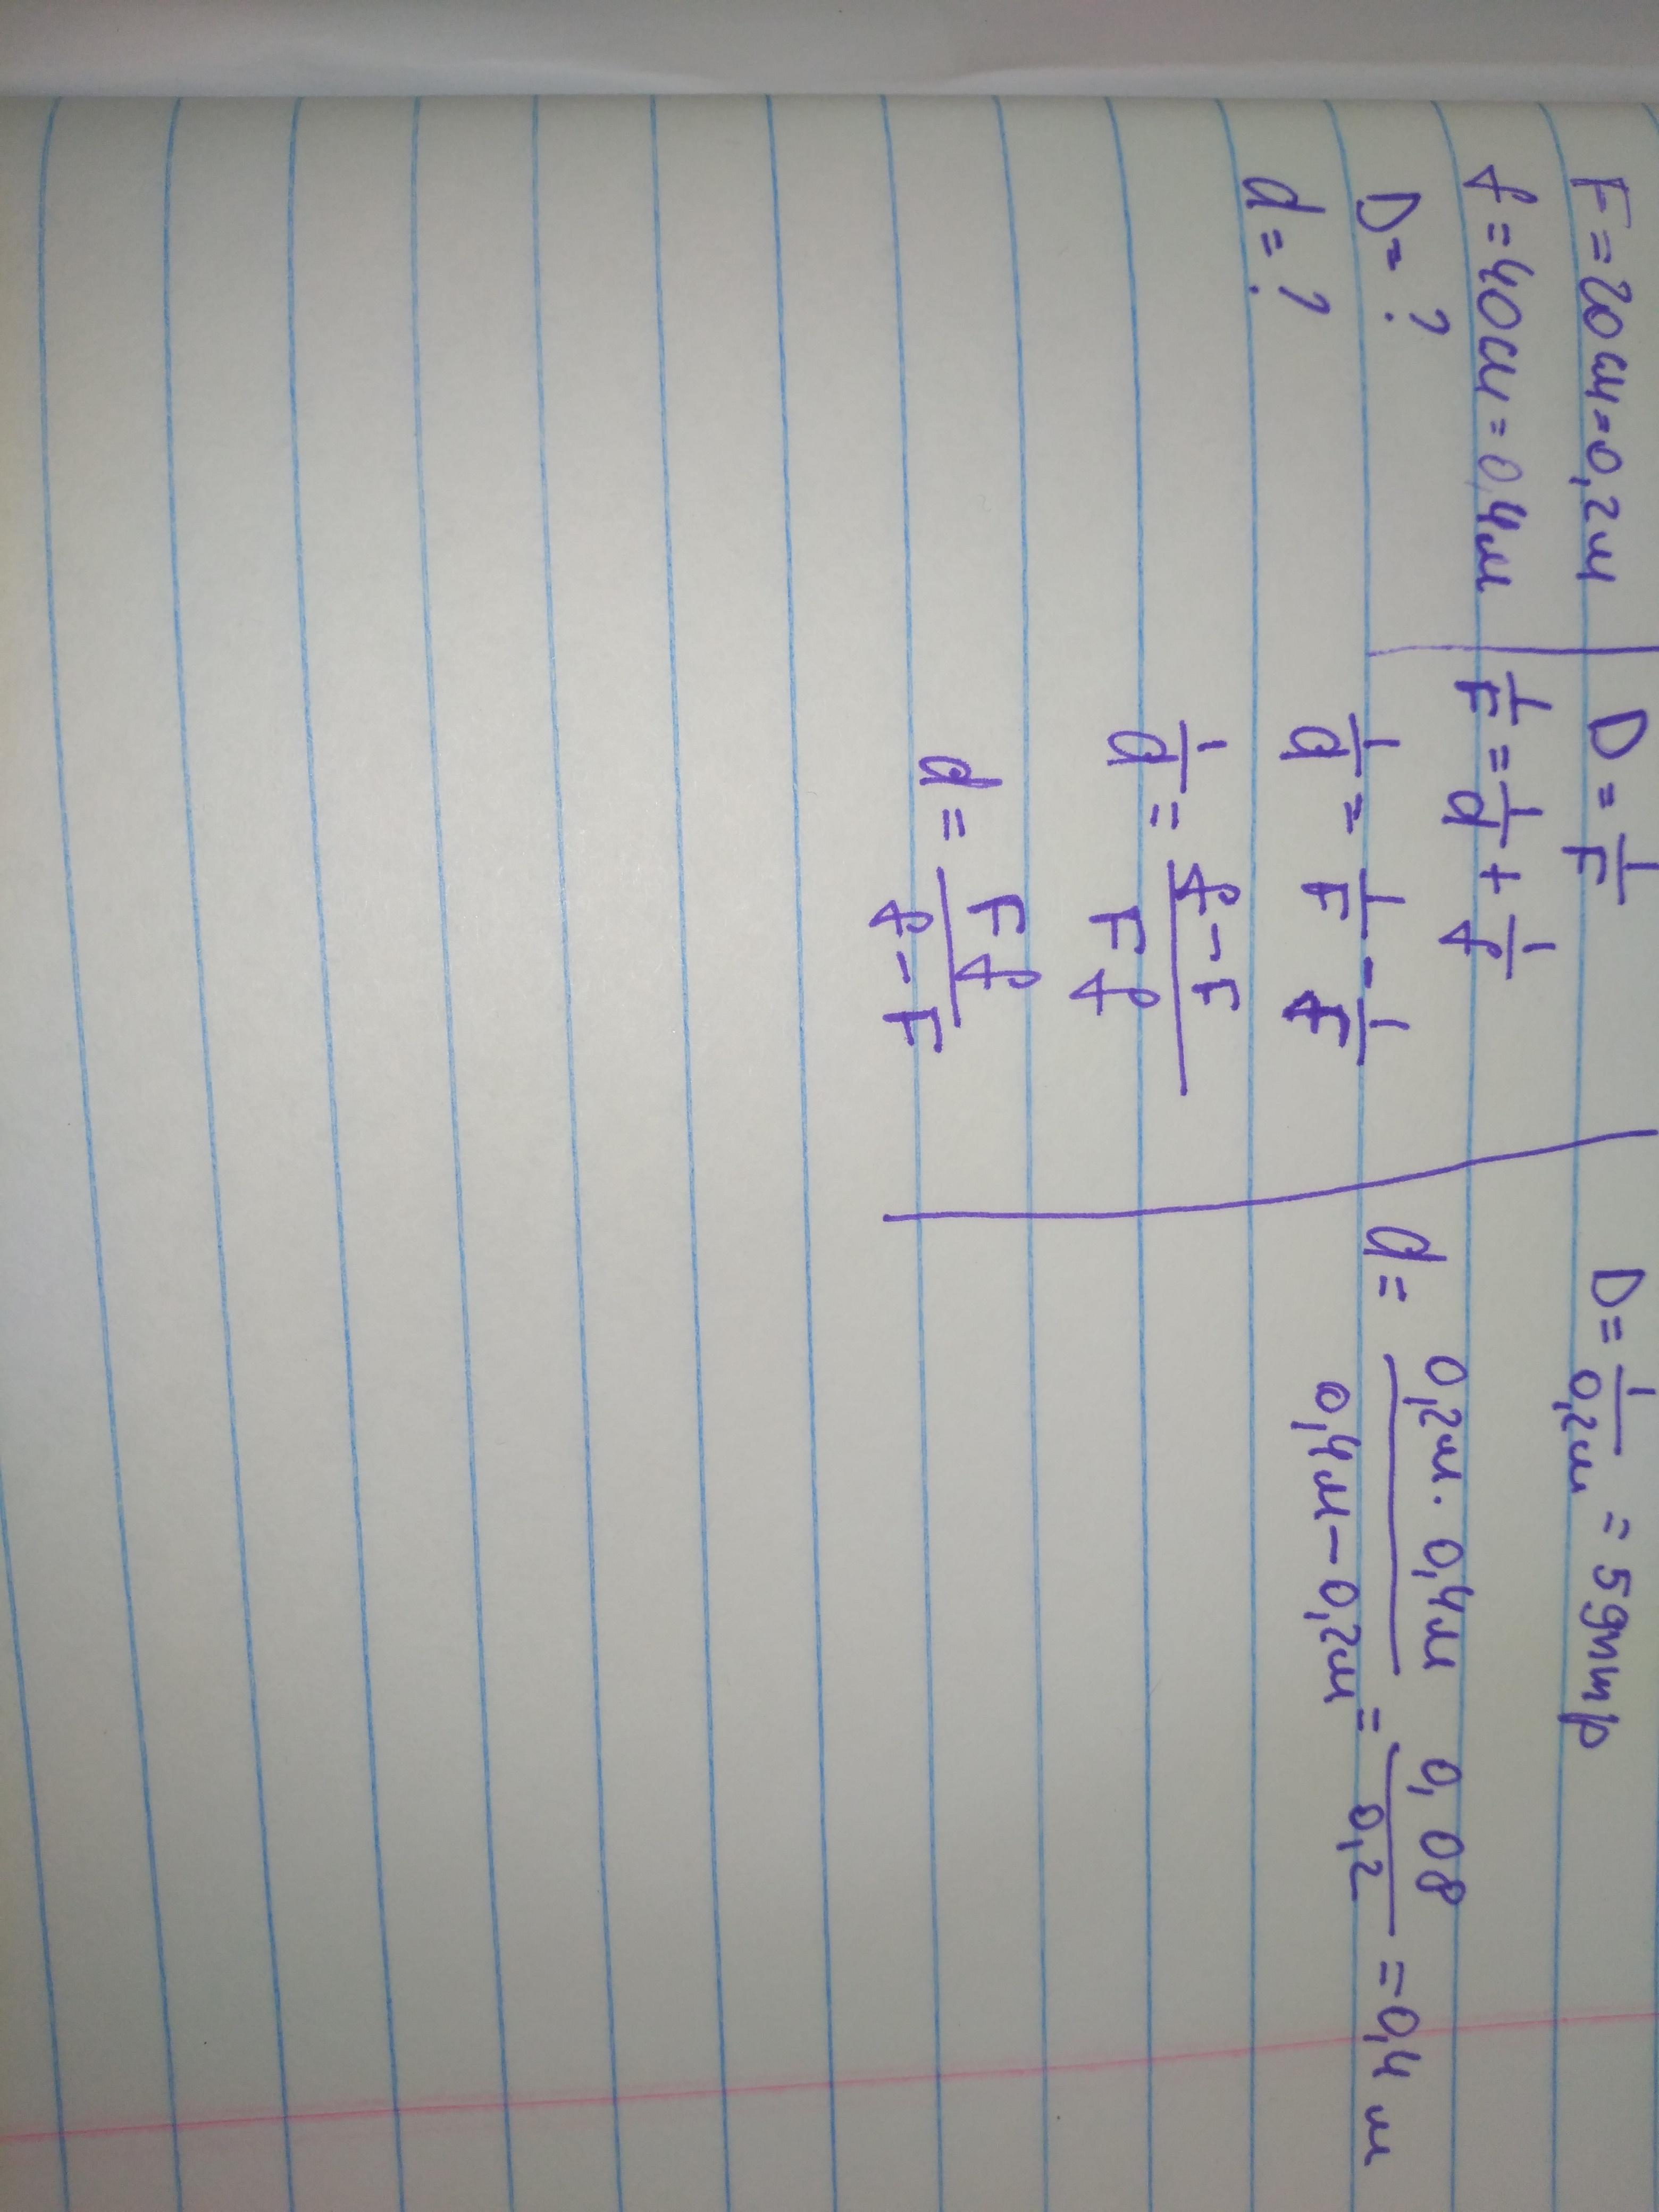 F = 20 см = 0,2 м
f = 40 см = 0,4 м
D = ?
d = ?
D = 1/F
1/F = 1/d + 1/f
1/d = 1/F - 1/f
1/d = f - F / F f
d = F f / f - F
D = 1/0,2 м = 5 дптр
d = 0,2 м · 0,4 м / 0,4 м - 0,2 м = 0,08 / 0,2 = 0,4 м